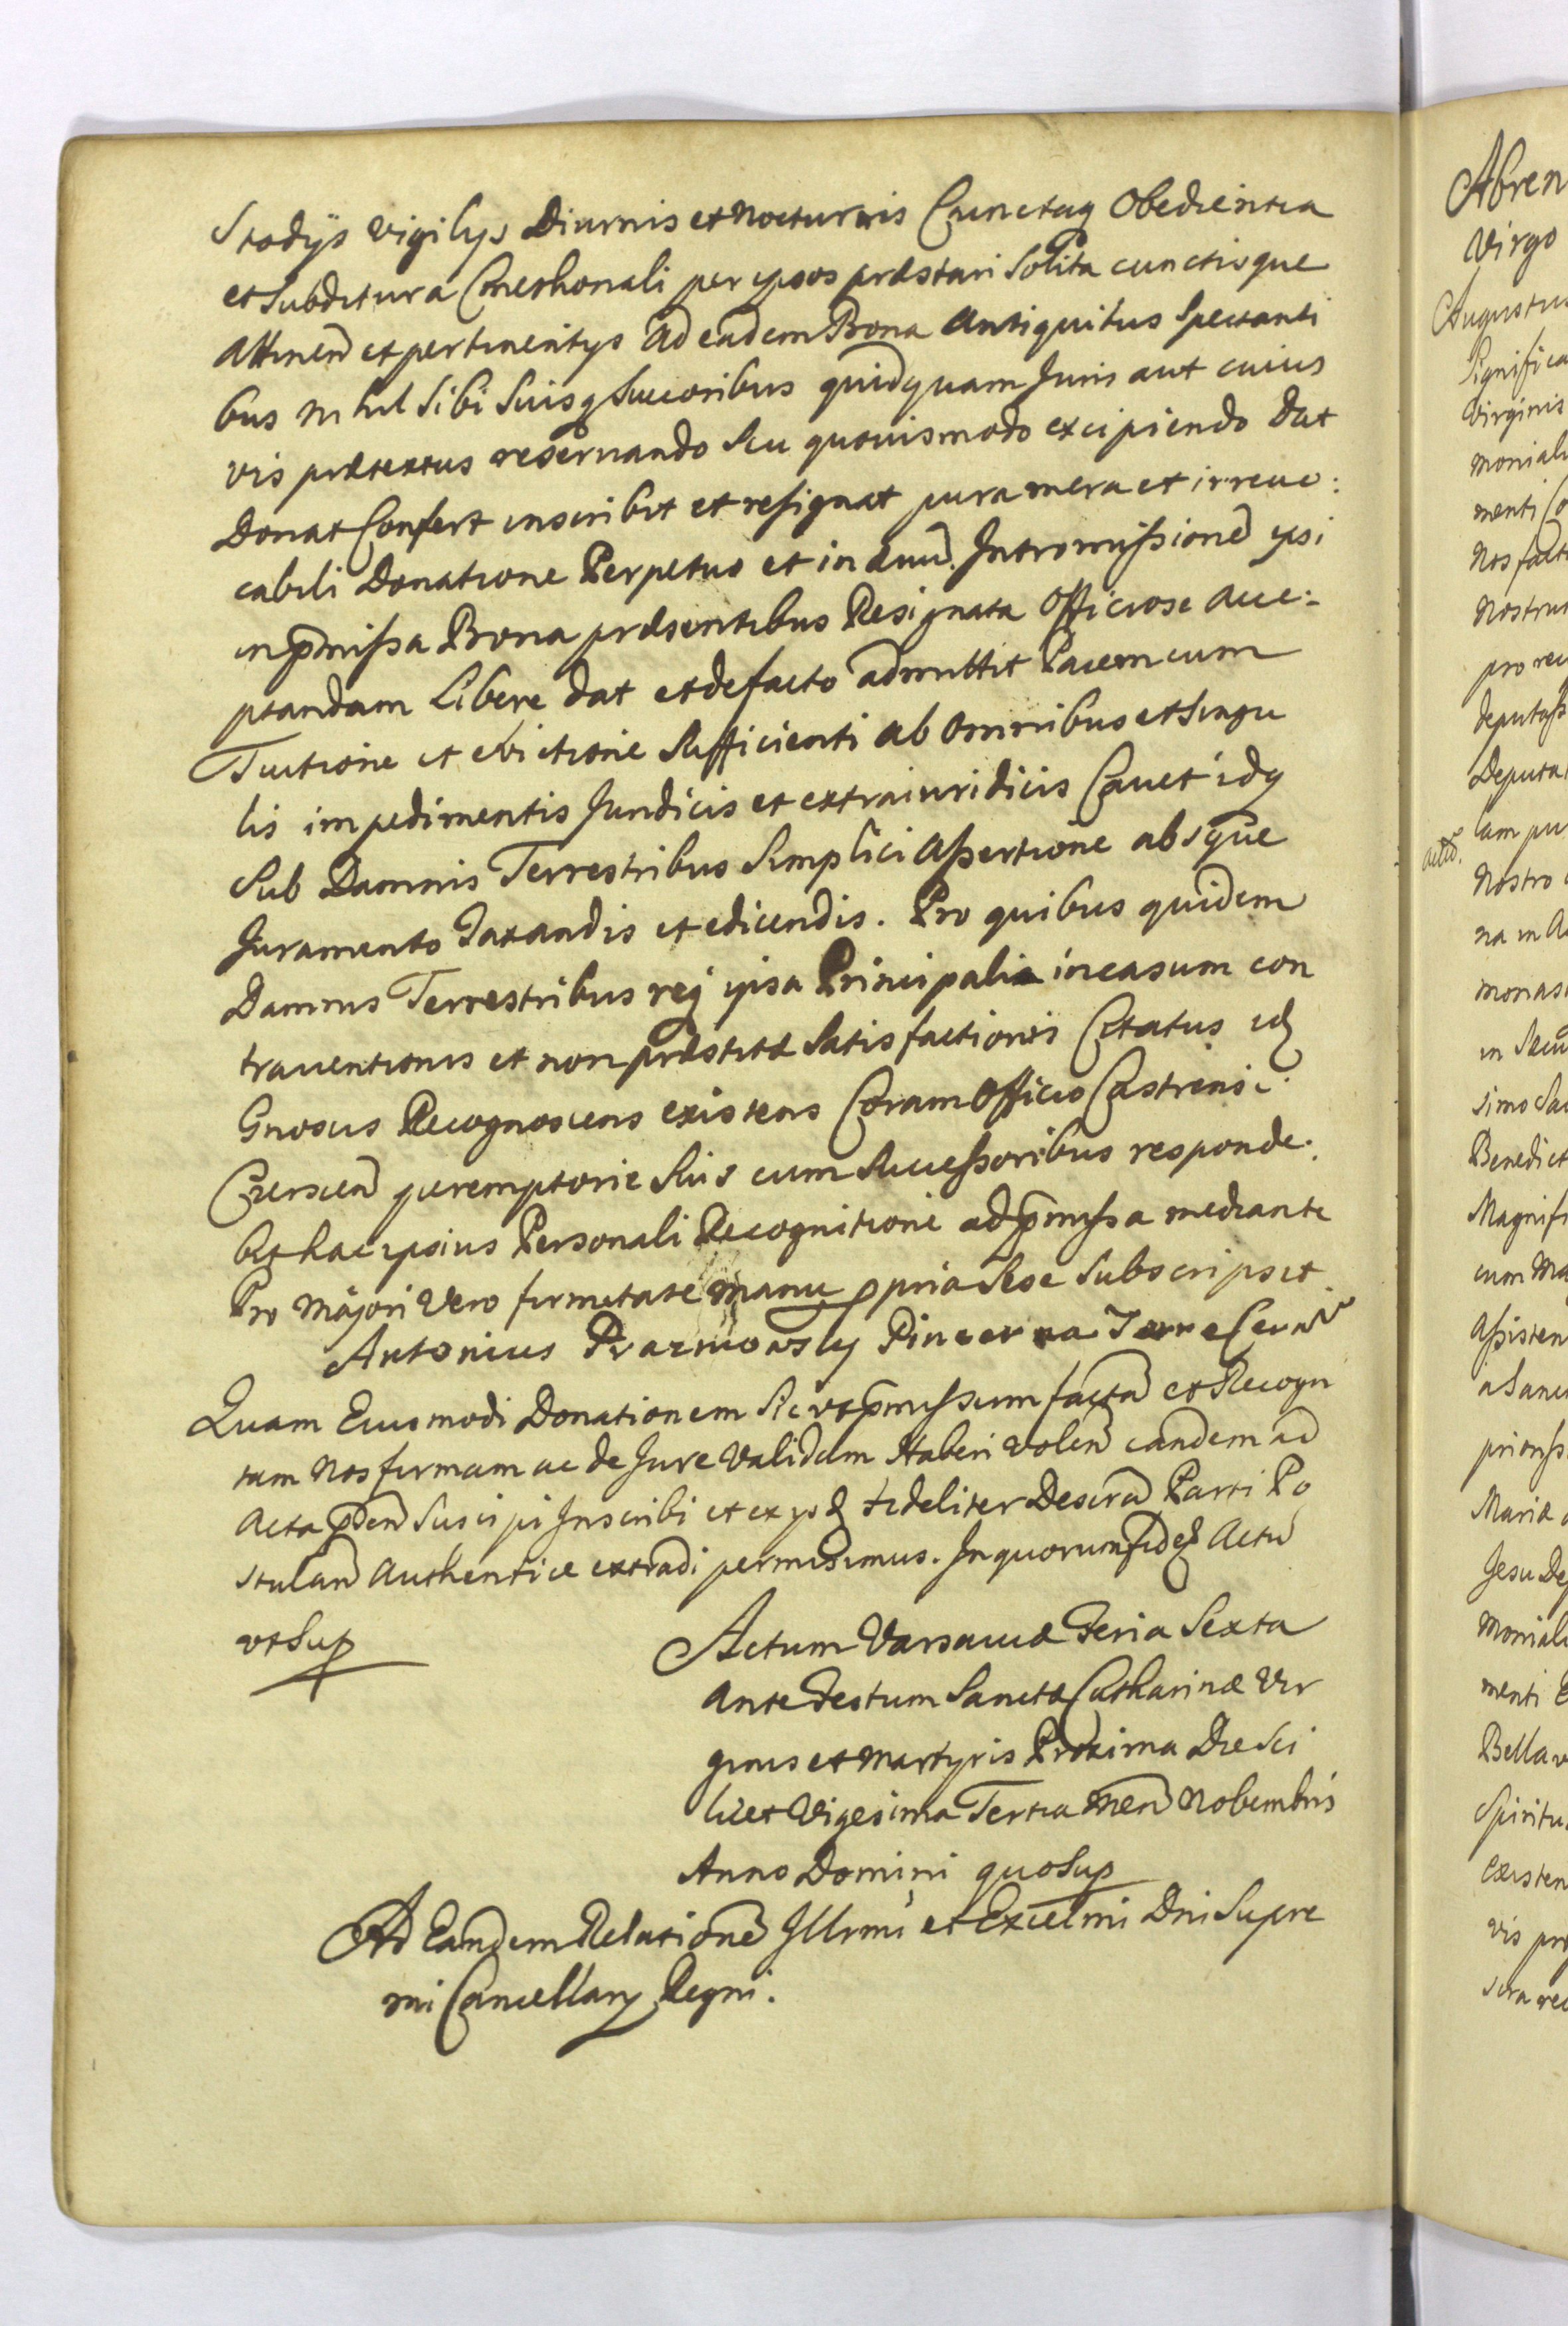 stodijs vigilijs Diurnis et nocturnis Cunctaq Obedientia
et subditura Cmethonali per ipsos præstari solita cunctisque
attinen et pertinentijs ad eadem Bona Antiquitus Spectanti
bus nihil sibi suisq succoribus quidquam Juris aut cuius
vis prætextus reservando seu quouismodo excipiendo Dat
Donat Confert inscribit et resignat pura mera et irreuo:
cabili Donatione Perpetuo et in æuu. Intromissione ipsi
in pmissa Bona præsentibus Resignata Officiose acce:
ptandam Libere dat et de facto admittit Pacem cum
Tuitione et evictione sufficienti ab omnibus et singu
lis impedimentis Juridicis et extraiuridicis Cauet idq
sub Damnis Terrestribus simplici assertione absque
Juramento Taxandis et edicendis. Pro quibus quidem
Damnis Terrestribus reiq ipsa Principali in casum con
trauentionis et non præstitæ satisfactionis Citatus id
Gnosus Recognoscens existens Coram Officio Castrensi
peremptorie suis cum successoribus responde.
bit hac ipsius Personali Recognitione ad pmissa mediante
Pro majori Vero firmitate manu ppria sese subscripsit
Antonius Prazmowsky Pincerna Terræ
Quam Eiusmodi Donationem sic vt pmissum factã et Recogni
tam nos firmam ac de Jure validam Haberi volen eandem ad
Acta pden suscipi Inscribi et ex ijsd fideliter Descrã Parti Po
stulan Authentice extradi permisimus. In quorum fid Actũ
vt sup
Actum Varsauiæ Feria Sexta
ante Festum Sanctæ Catharinæ Vir
ginis et Martyris Proxima Die sci
licet Vigesima Tertia Men Nobembris
Anno Domini quo sup
Ad Eandem Relationẽ Illrmi et Excelmi Dni Supre
mi Cancellarij Regni.
Abren
Virgo
Augustus
Significa
Virginis
monial
menti Co
Nos fact
Nostrut
pro rec
deputass
Deputa
lam pu
Nostro
na in A
monas
in Secu
simo Sa
Benedict
Magnifi
cum Ma
Assisten
a Sanc
prioriss
Mariæ
Jesu De
Monial
menti
Bella v
Spiritu
Existen
vis pro